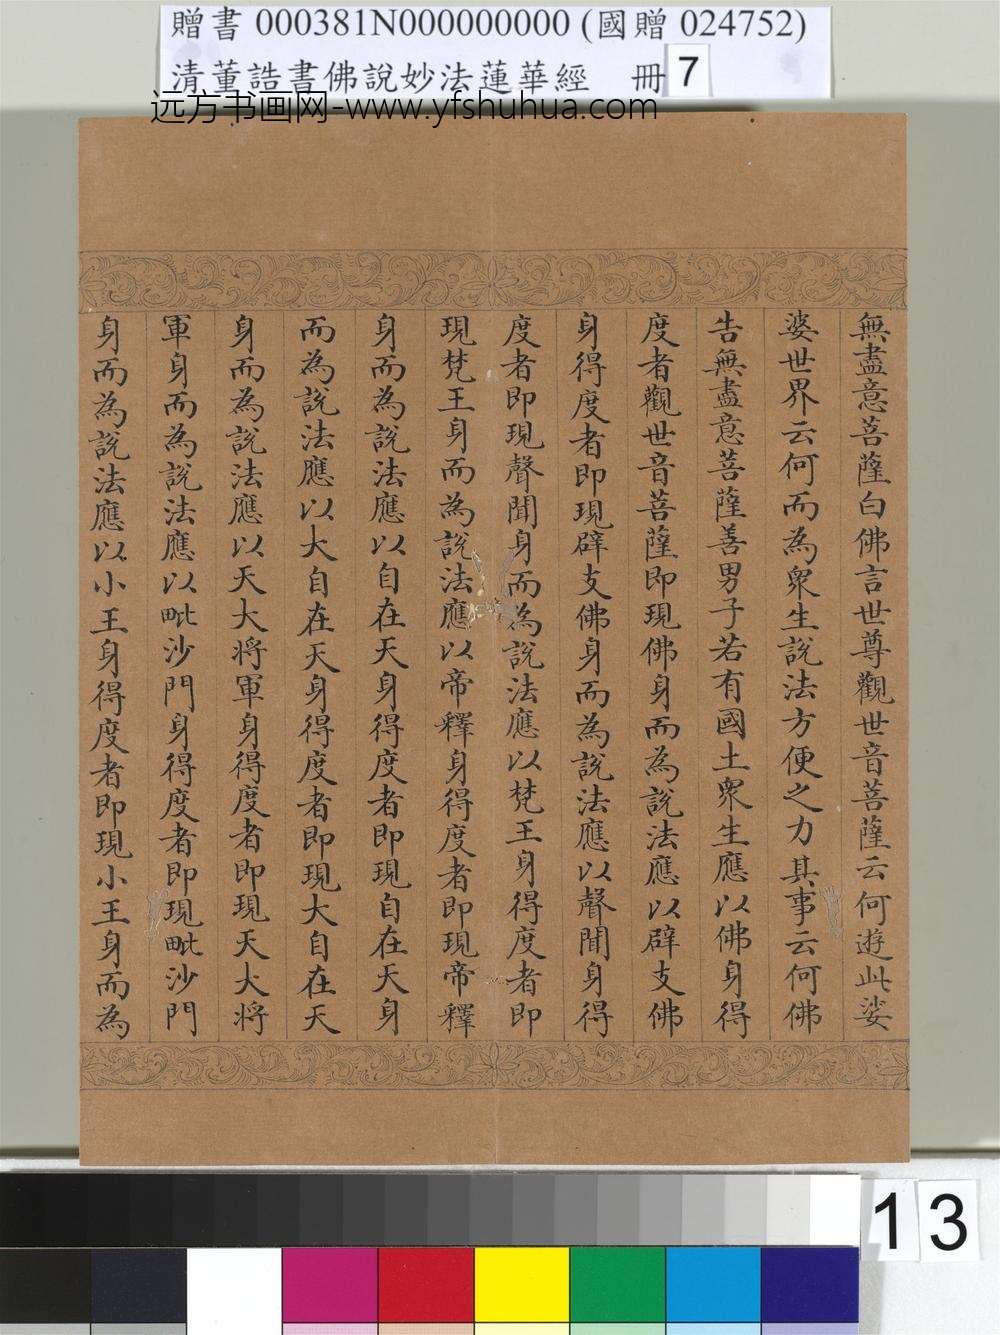 贈書 000381N000000000 (國贈 024752)
清董誥書佛說妙法蓮華經 冊 7
远方书画网-www.yfshuhua.com
無盡意菩薩白佛言世尊觀世音菩薩云何遊此娑
婆世界云何而為衆生說法方便之力其事云何佛
告無盡意菩薩善男子若有國土衆生應以佛身得
度者觀世音菩薩即現佛身而為說法應以辟支佛
身得度者即現辟支佛身而為說法應以聲聞身得
度者即現聲聞身而為說法應以梵王身得度者即
現梵王身而為說法應以帝釋身得度者即現帝釋
身而為說法應以自在天身得度者即現自在天身
而為說法應以大自在天身得度者即現大自在天
身而為說法應以天大將軍身得度者即現天大將
軍身而為說法應以毗沙門身得度者即現毗沙門
身而為說法應以小王身得度者即現小王身而為
13